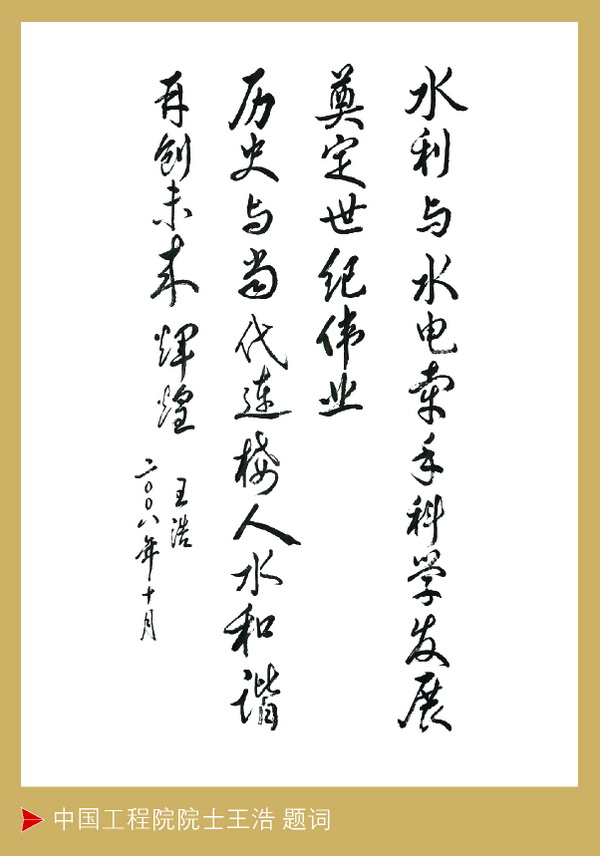 水利与水电牵手科学发展
奠定世纪伟业
历史与当代连接人水和谐
再创未来辉煌
王浩
二〇〇八年十月
中国工程院院士王浩 题词